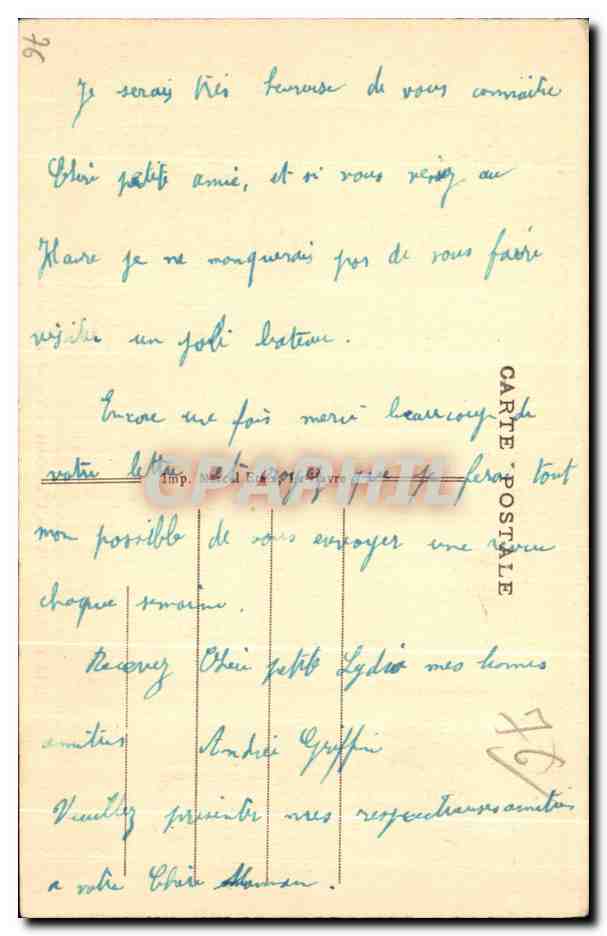 76
Je serais très heureuse de vous connaître
Chère petite amie, et si vous venez au
Havre je ne manquerais pas de vous faire
visiter un joli bateau.
Encore une fois merci beaucoup de
votre lettre et soyez que je ferai tout
Imp. Havre
CPAPHIL
mon possible de vous envoyer une revue
chaque semaine.
Recevez Chère petite Lydia mes bonnes
amitiés Andrée Griffin
Veuillez présenter mes respectueuses amitiés
a votre Chère Maman.
CARTE POSTALE
76